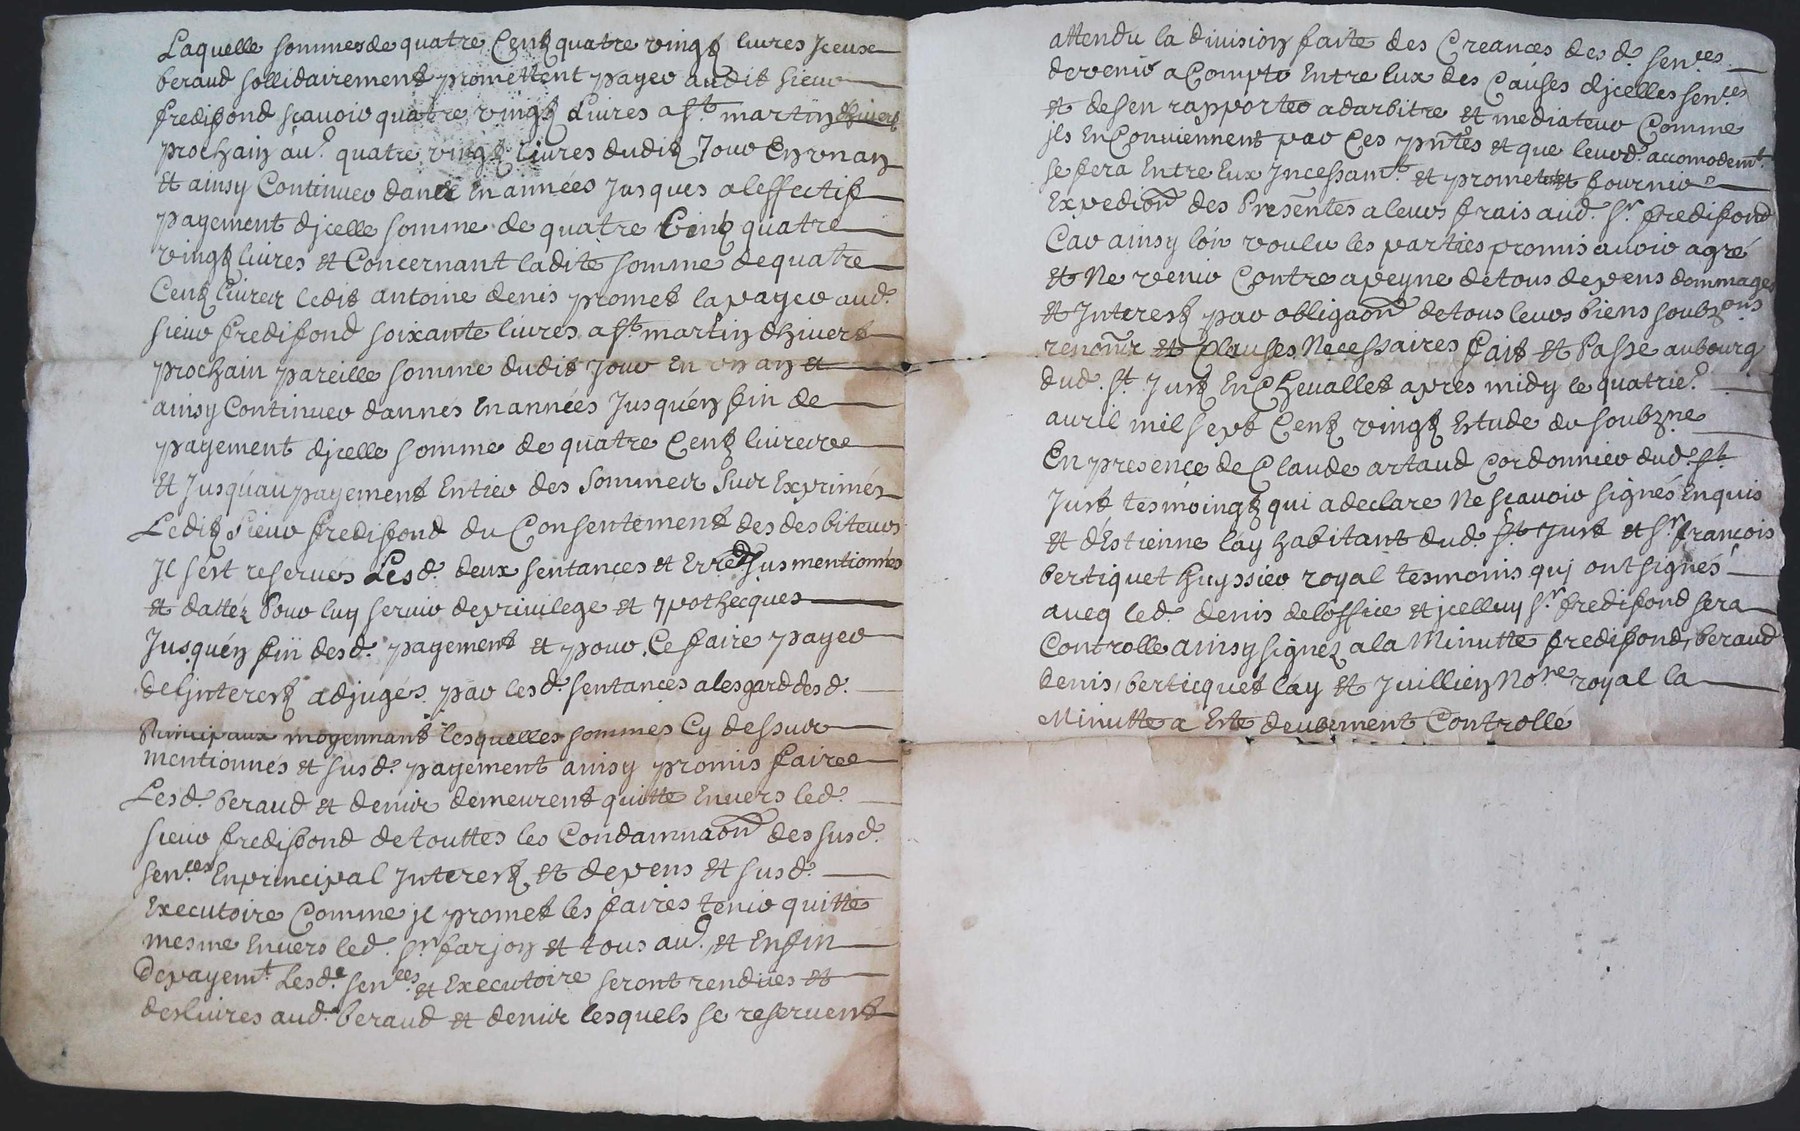 Laquelle sommesde quatre Centz quatre vingtz livres Jceux
beraud sollidairement promettent payer audit sieur
fredifond sçavoir quatre vingtz Livres a st martin dhivert
prochain au.? quatre vingtz livres dudit Jour En un an
Et ainsy Continuer dannée En années Jusques aleffectif
payement djcelle somme de quatre Centz quatre
vingtz livres et Concernant ladite somme dequatre
Centz livres ledit antoine denis promet la payer aud.
sieur fredifond soixante livres a st martin dhivert
prochain pareille somme dudit Jour En un an et
ainsy Continuer dannés En années Jusquén fin de
payement djcelle somme de quatre Centz livre
Et Jusquau payement Entier des Sommes Sur Exprimés
Ledit Sieur fredifond du Consentement des desbiteurs
Jl sest reservés Lesd. deux sentances et susmentionnés
et dattéz Pour luy servir deprivilege et ypothecques
Jusquén fin desd. payement et pour Ce faire payer
desJnterestz adjugés par lesd. sentances alesgard desd.
Principaux moyennant lesquelles sommes Cy dessur
mentionnés et susd. payement ainsy promis faire
Lesd. beraud et denis demeurent quitte Envers led.
sieur fredifond detouttes les Condamnaon des susd.
sen.ces Enprincipal Jnterestz et depens et susd.
Executoire Comme jl promet les faires tenir quitte
mesme Envers led. sr farjon et tous aud. et Enfin
Depayemt. Lesd. sen.ces et Executoire seront rendües et
deslivres aud. beraud et denis lesquels se reservent
attendu la division faite des Creances desd. sen.ces
devenir a Compte Entre Eux des Causes djcelles sen.ces
et desen rapporter adarbitre et mediateur Comme
jls En Conviennent par Ces pntes et que leurd. accomodemt.
se fera Entre Eux Jncessamt. et promettent fournir
Expedion des Presentes a leurs frais aud. sr. fredifond
Car ainsy lon voulu les parties promis avoir agré
et Ne venir Contre apeyne detous depens dommages
et Jnterestz par obligaon detous leurs biens soubzons
renoner et Clauses Necessaires fait et Passé aubourg
dud. st. Just En Chevallet apres midy le quatrie.
avril mil sept Centz vingtz Estude du soubzne
En presence de Claude artaud Cordonnier dud. st
Just tesmoingtz qui a declare Ne scavoir signés Enquis
et dEstienne lay habitant dud. st Just et sr. francois
bertiquet huyssier royal tesmoins qui ont signés
aveq led. denis deloffice et jcelluy sr. fredifond sera
Controlle ainsy signéz a la Minutte fredifond, beraud
denis, berticquet lay et Juillien Nore royal la
Minutte a Este deubement Controllé